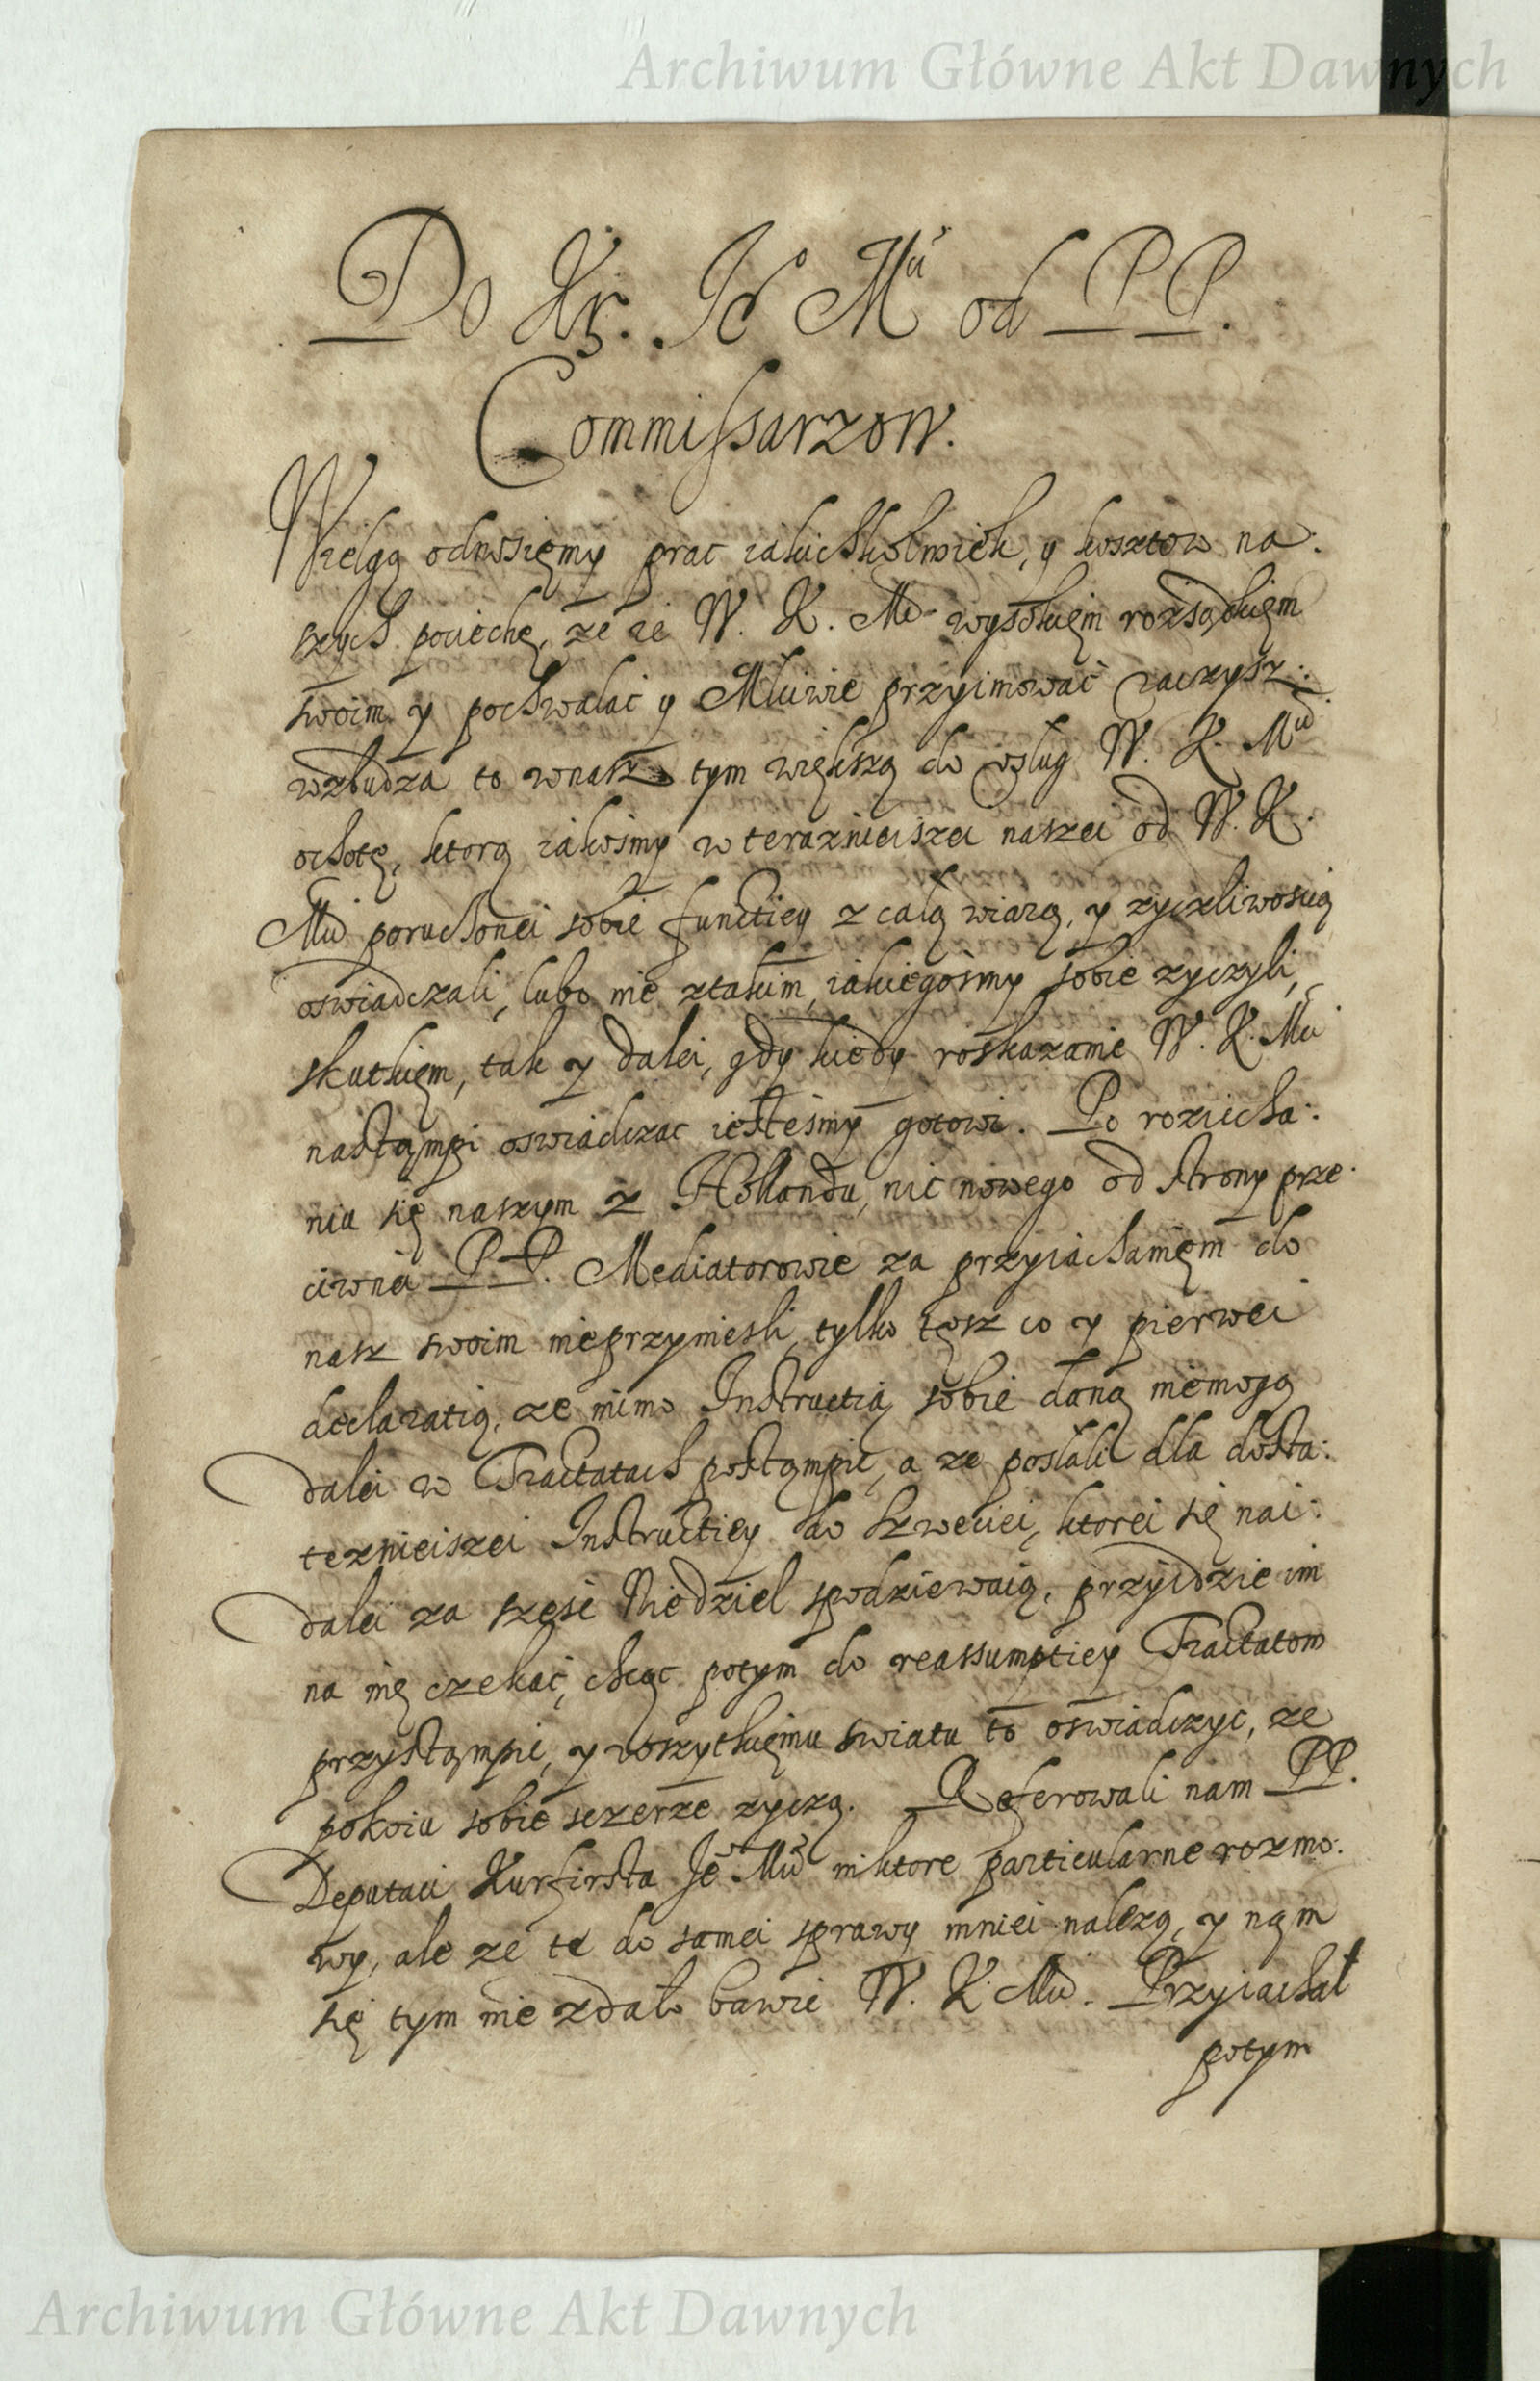 Archiwum Główne Akt Dawnych
Do Kr. Je° Mci od PP.
Commissarzow.
Wielgą odnosięmy prac iakichkolwiek, y kosztow na:
szych pociechę, że ie W. K. Mć wysokięm rozsądkięm
swoim y pochwalać y Mciwie przyimować raczysz:
wzbudza to wnasz tym większą do usług W. K. Mci
ochotę, ktorą iakośmy w teraznieiszei naszei od W. K.
Mci poruchonei sobie functiey z całą wiarą, y zyczliwoscią
oswiadczali, lubo nie ztakim, iakiegosmy sobie zyczyli,
skutkięm, tak y dalei, gdy kiedy roskazanie W. K. Mci
nastąmpi oswiadczac iestesmy gotowi. Po roziecha:
niu się naszym z Hollandu, nic nowego od strony prze:
ciwnei PP. Mediatorowie za przyiachanięm do
nasz swoim nieprzyniesli, tylko tęsz co y pierwei
declaratią, ze mimo Instructią sobie daną niemogą
dalei w Tractatach postąmpić, a ze posłali dla dosta:
tecznieiszei Instructiey do Szweciei, ktorei się nai:
dalei za szesc Niedziel spodziewaią, przyidzie im
na nię czekać, chcąc potym do reassumptiey Tractatow
przystąmpic, y wszytkięmu swiatu to oswiadczyc, ze
pokoiu sobie sczerze zyczą. Referowali nam PP.
Deputaci Kurfirsta Je° Mci niktore particularne rozmo:
wy, ale ze te do samei sprawy mniei nalezą, y nąm
się tym nie zdało bawic W. K. Mci. Przyiachał
potym
Archiwum Główne Akt Dawnych